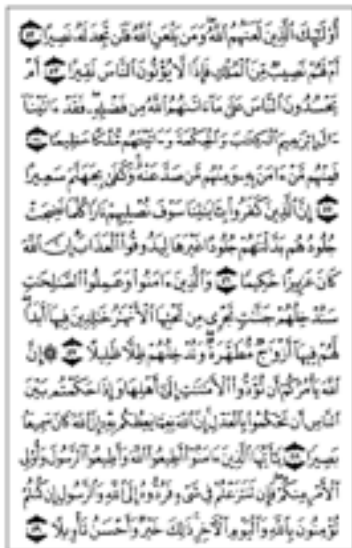 أُوْلَٰٓئِكَ ٱلَّذِينَ لَعَنَهُمُ ٱللَّهُ وَمَن يَلْعَنِ ٱللَّهُ فَلَن تَجِدَ لَهُۥ نَصِيرًا ٥٢
أَمْ لَهُمْ نَصِيبٌ مِّنَ ٱلْمُلْكِ فَإِذًا لَّا يُؤْتُونَ ٱلنَّاسَ نَقِيرًا ٥٣ أَمْ
يَحْسُدُونَ ٱلنَّاسَ عَلَىٰ مَآ ءَاتَىٰهُمُ ٱللَّهُ مِن فَضْلِهِۦ فَقَدْ ءَاتَيْنَآ
ءَالَ إِبْرَٰهِيمَ ٱلْكِتَٰبَ وَٱلْحِكْمَةَ وَءَاتَيْنَٰهُم مُّلْكًا عَظِيمًا ٥٤
فَمِنْهُم مَّنْ ءَامَنَ بِهِۦ وَمِنْهُم مَّن صَدَّ عَنْهُ وَكَفَىٰ بِجَهَنَّمَ سَعِيرًا
٥٥ إِنَّ ٱلَّذِينَ كَفَرُوا۟ بِـَٔايَٰتِنَا سَوْفَ نُصْلِيهِمْ نَارًا كُلَّمَا نَضِجَتْ
جُلُودُهُم بَدَّلْنَٰهُمْ جُلُودًا غَيْرَهَا لِيَذُوقُوا۟ ٱلْعَذَابَ إِنَّ ٱللَّهَ
كَانَ عَزِيزًا حَكِيمًا ٥٦ وَٱلَّذِينَ ءَامَنُوا۟ وَعَمِلُوا۟ ٱلصَّٰلِحَٰتِ
سَنُدْخِلُهُمْ جَنَّٰتٍ تَجْرِى مِن تَحْتِهَا ٱلْأَنْهَٰرُ خَٰلِدِينَ فِيهَآ أَبَدًا
لَّهُمْ فِيهَآ أَزْوَٰجٌ مُّطَهَّرَةٌ وَنُدْخِلُهُمْ ظِلًّا ظَلِيلًا ٥٧ ۞ إِنَّ
ٱللَّهَ يَأْمُرُكُمْ أَن تُؤَدُّوا۟ ٱلْأَمَٰنَٰتِ إِلَىٰٓ أَهْلِهَا وَإِذَا حَكَمْتُم بَيْنَ
ٱلنَّاسِ أَن تَحْكُمُوا۟ بِٱلْعَدْلِ إِنَّ ٱللَّهَ نِعِمَّا يَعِظُكُم بِهِۦٓ إِنَّ ٱللَّهَ كَانَ سَمِيعًۢا
بَصِيرًا ٥٨ يَٰٓأَيُّهَا ٱلَّذِينَ ءَامَنُوٓا۟ أَطِيعُوا۟ ٱللَّهَ وَأَطِيعُوا۟ ٱلرَّسُولَ وَأُو۟لِى
ٱلْأَمْرِ مِنكُمْ فَإِن تَنَٰزَعْتُمْ فِى شَىْءٍ فَرُدُّوهُ إِلَى ٱللَّهِ وَٱلرَّسُولِ إِن كُنتُمْ
تُؤْمِنُونَ بِٱللَّهِ وَٱلْيَوْمِ ٱلْءَاخِرِ ذَٰلِكَ خَيْرٌ وَأَحْسَنُ تَأْوِيلًا ٥٩